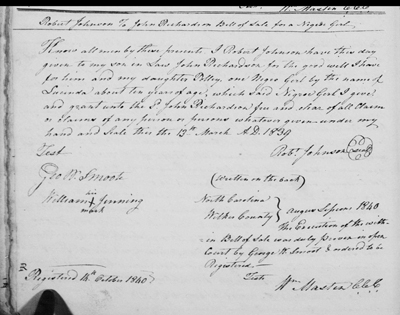 Wm Masten C.C.C.
Robert Johnson To John Richardson Bill of Sale for a Negro Girl
Know all men by these presents I Robert Johnson have this day
given to my son in Law John Richardson for the good will I have
for him and my daughter Polley, one Negro Girl by the name of
Lorinda about ten years of age, which said Negro Girl I give
and grant unto the Sd. John Richardson free and clear of all Claim
or Claims of any person or persons whatever given under my
hand and Seale this the 13th March A.D. 1839
Test
Robt. Johnson Seal
Geo W. Smoot
William his mark Jenning
(Written on the back)
North Carolina
Wilkes County
1840
The Execution of the with-
in Bill of Sale was duly Proven in open
Court by George W. Smoot & ordered to be
Registered —
Test
Wm Masten C.C.C.
Registered 14th October 1840